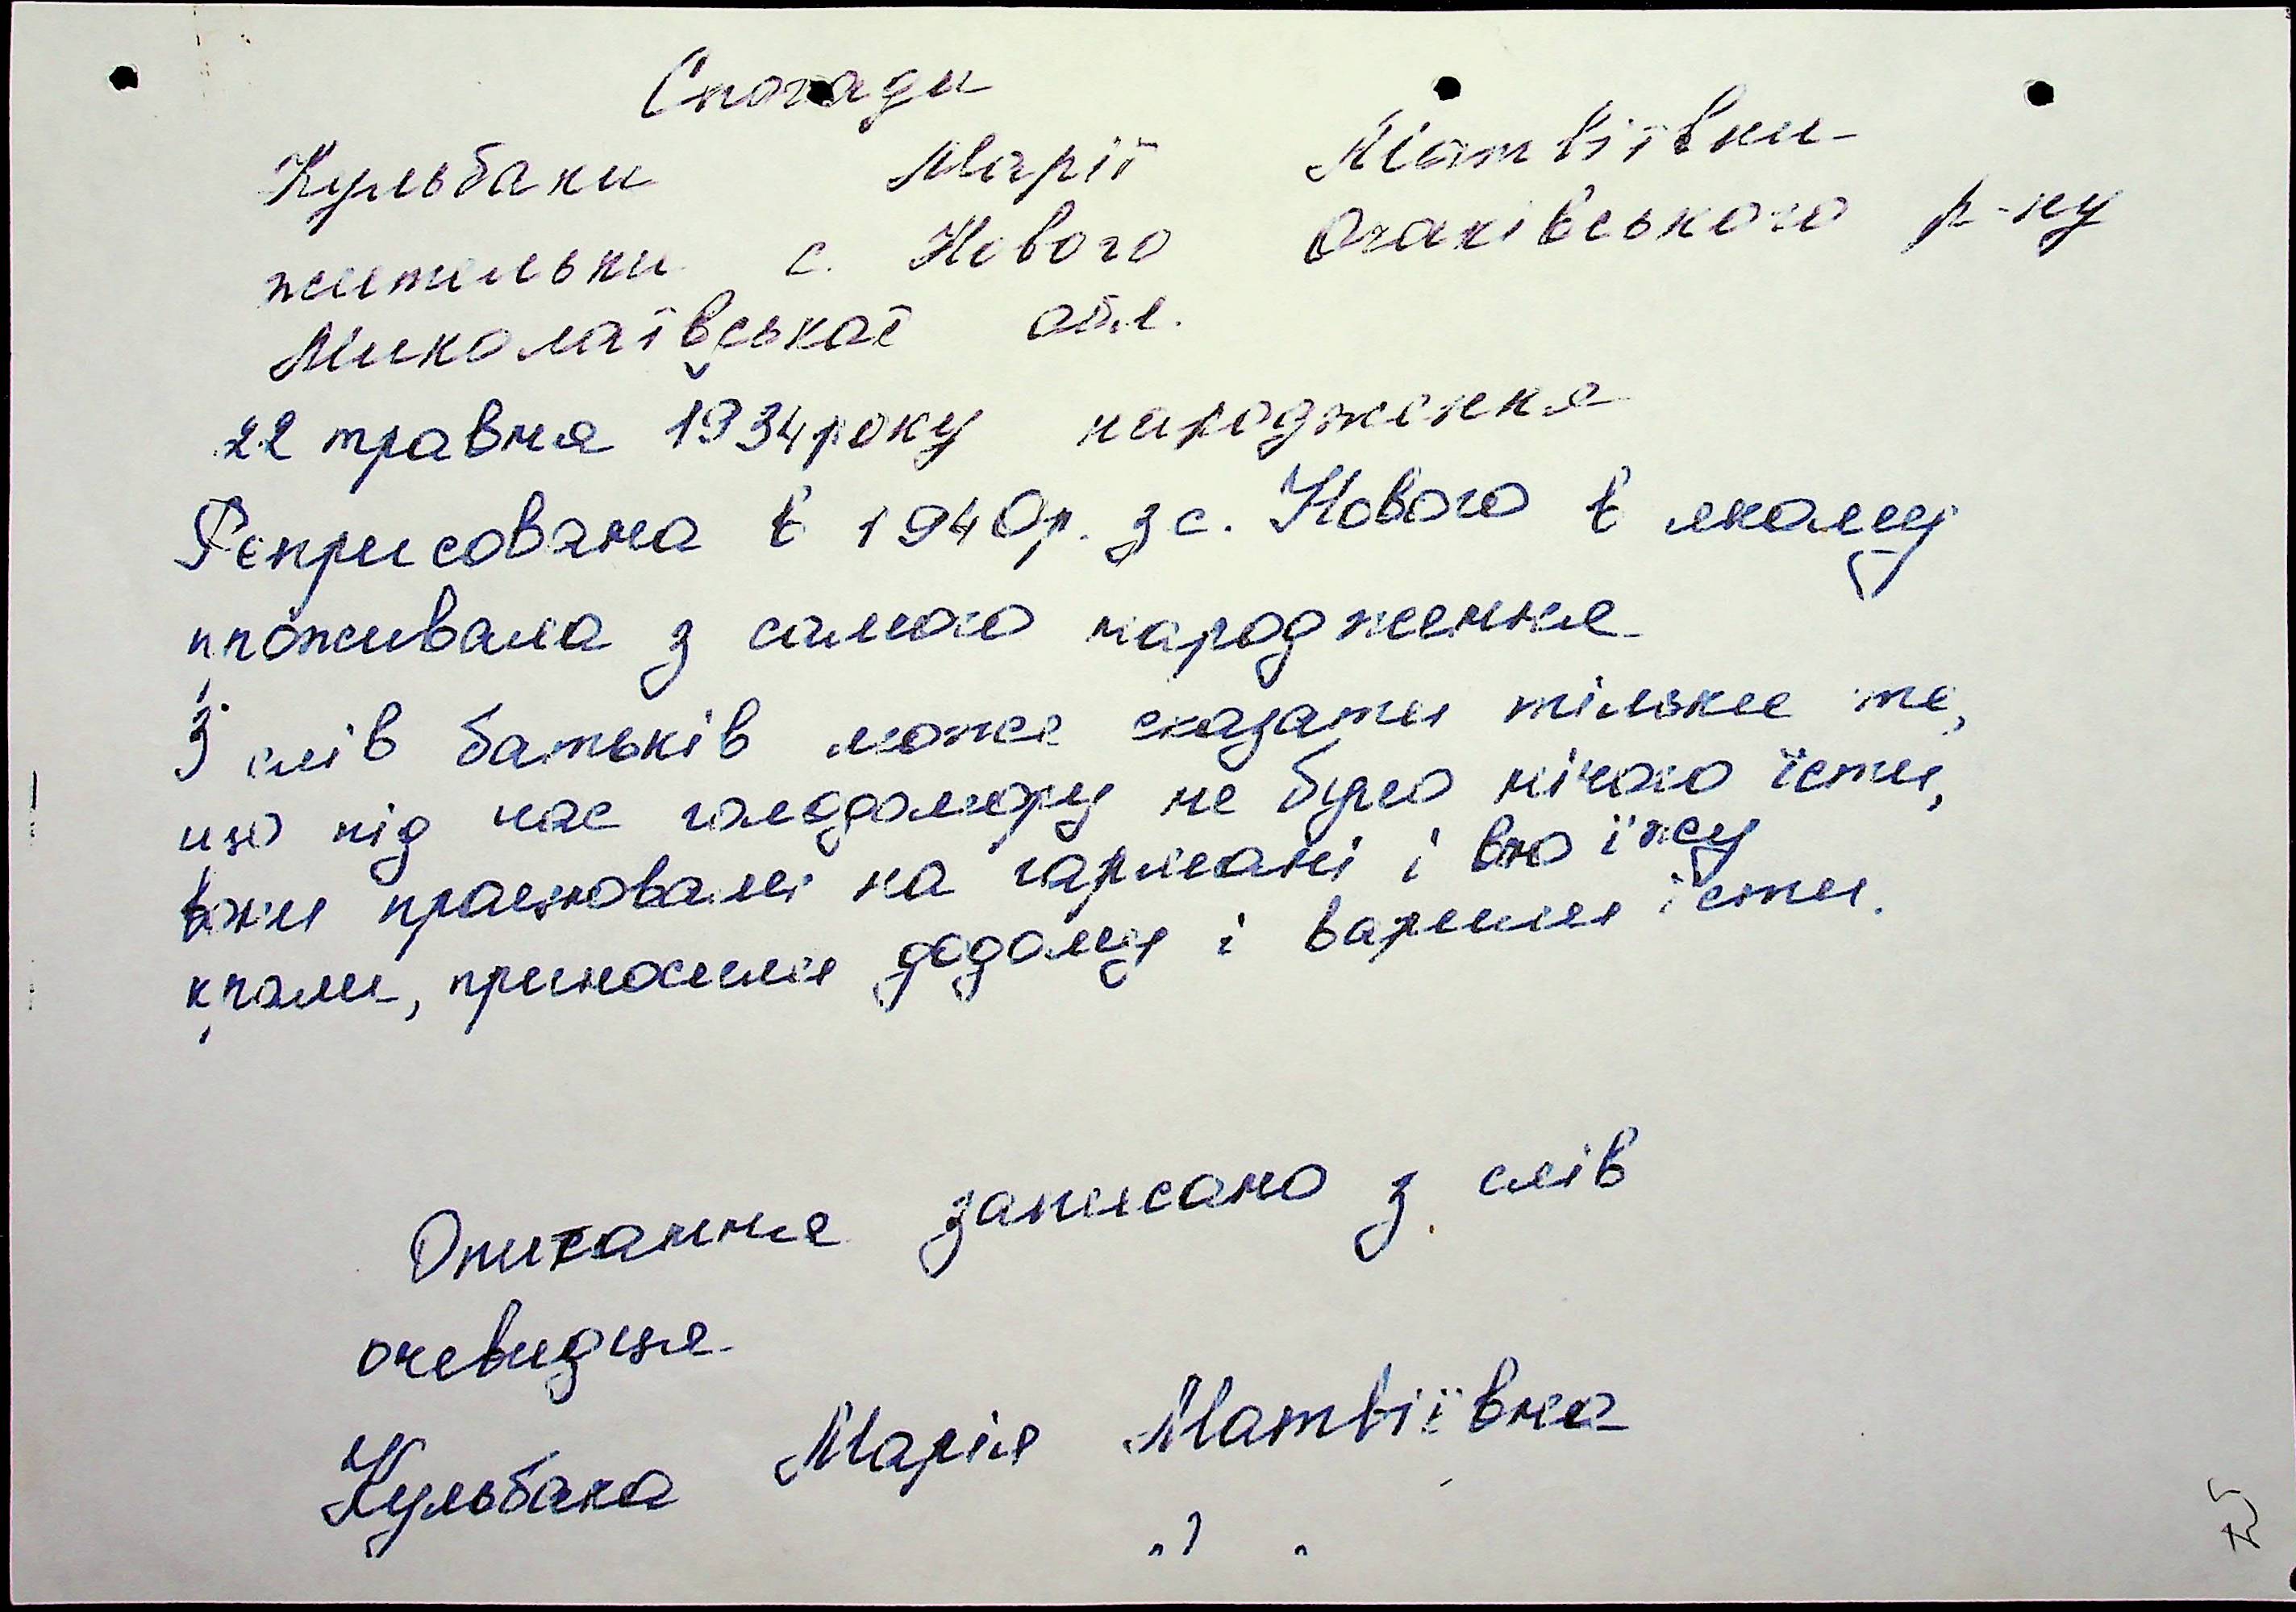 Спогади
Кульбаки Марії Матвіївни
жительки с. Нового Очаківського р-ну
Миколаївської обл.
22 травня 1934 року народження
Реприсована в 1940р. з с. Нового в якому
проживала з самого народження
З слів батьків може сказати тільки те,
що під час голодомору не було нічого їсти,
вони працювали на гармані і вю їжу
крали, приносили додому і варили їсти.
Описання записано з слів
очевидця
Кульбака Марія Матвіївна